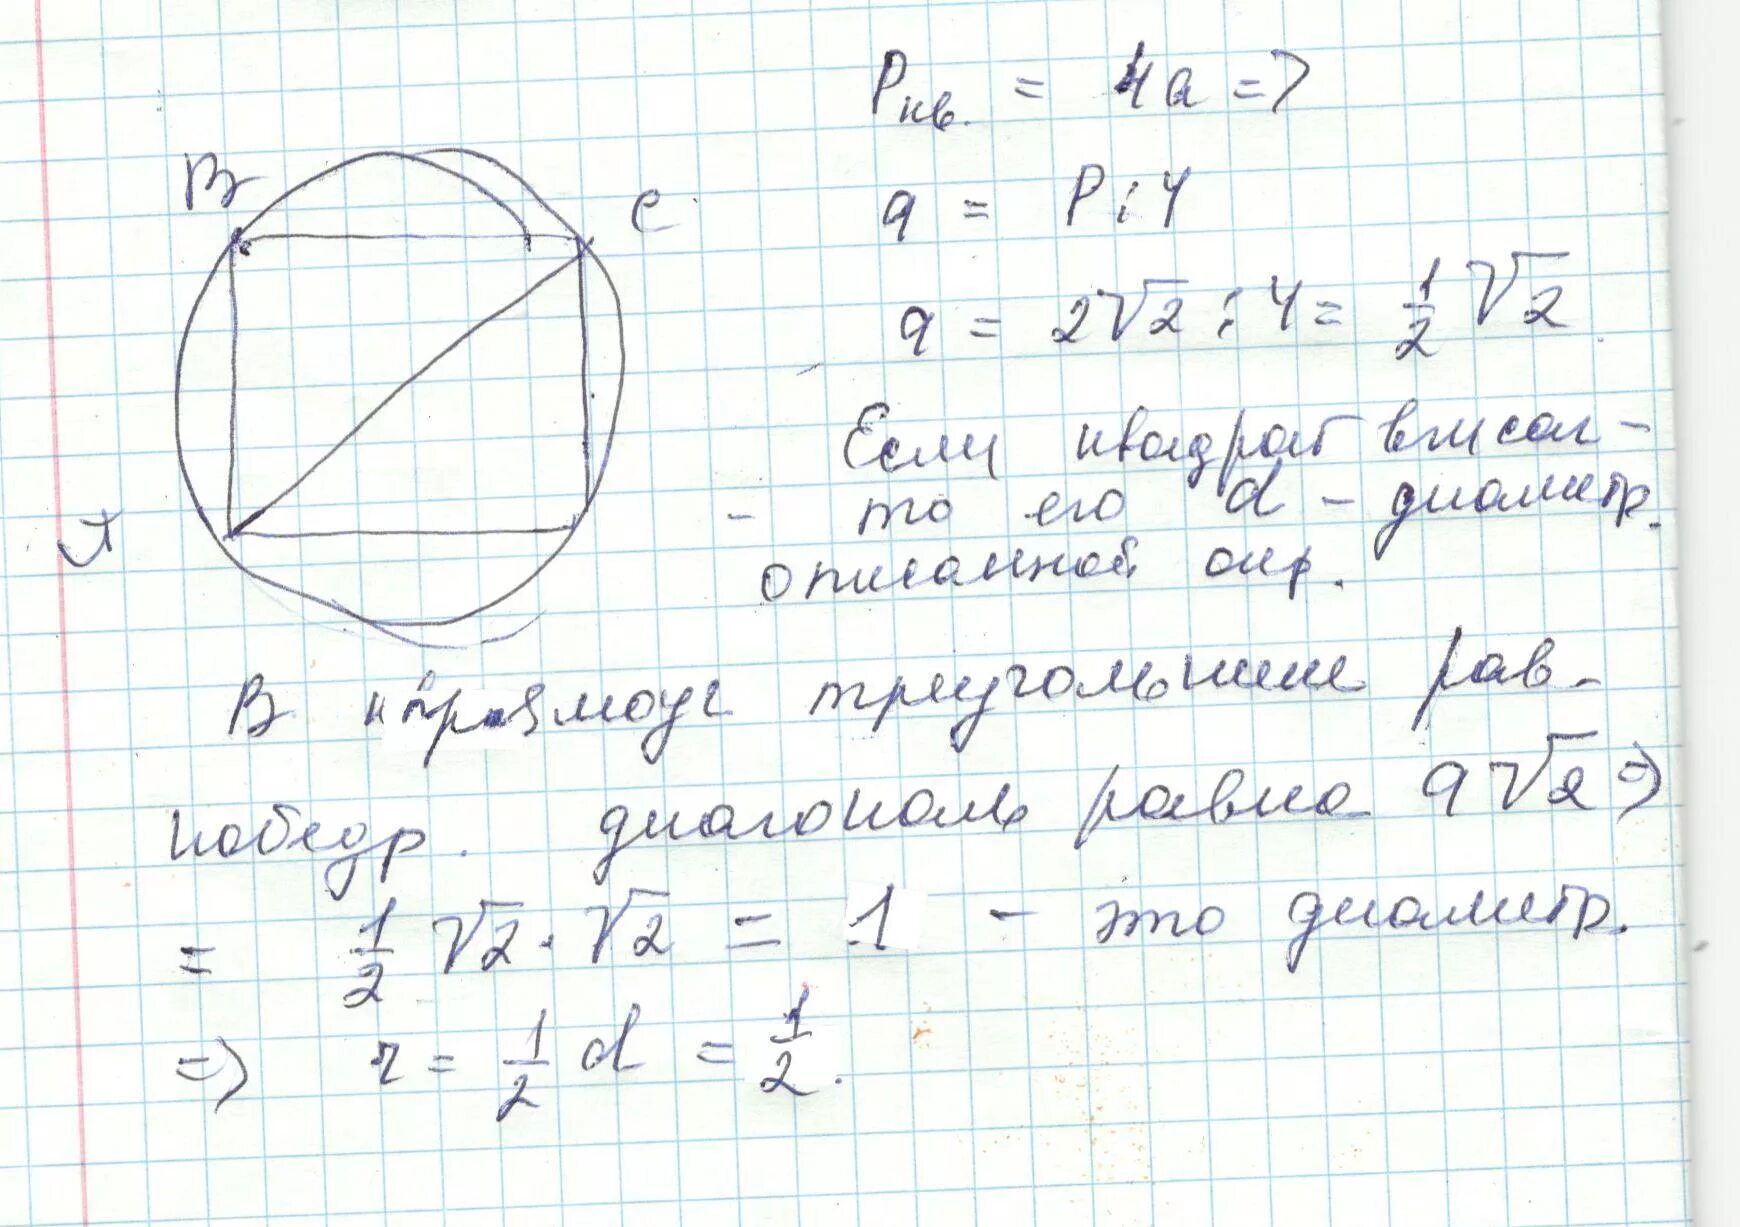 B
C
A
Pкв. = 4a =>
a = P : 4
a = 2√2 : 4 = 1/2 √2
Если квадрат вписан -
- то его d - диаметр.
описанной окр.
В прямоуг треугольнике рав-
нобедр. диагональ равна a√2 =>
= 1/2 √2 · √2 = 1 - это диаметр.
=> r = 1/2 d = 1/2.